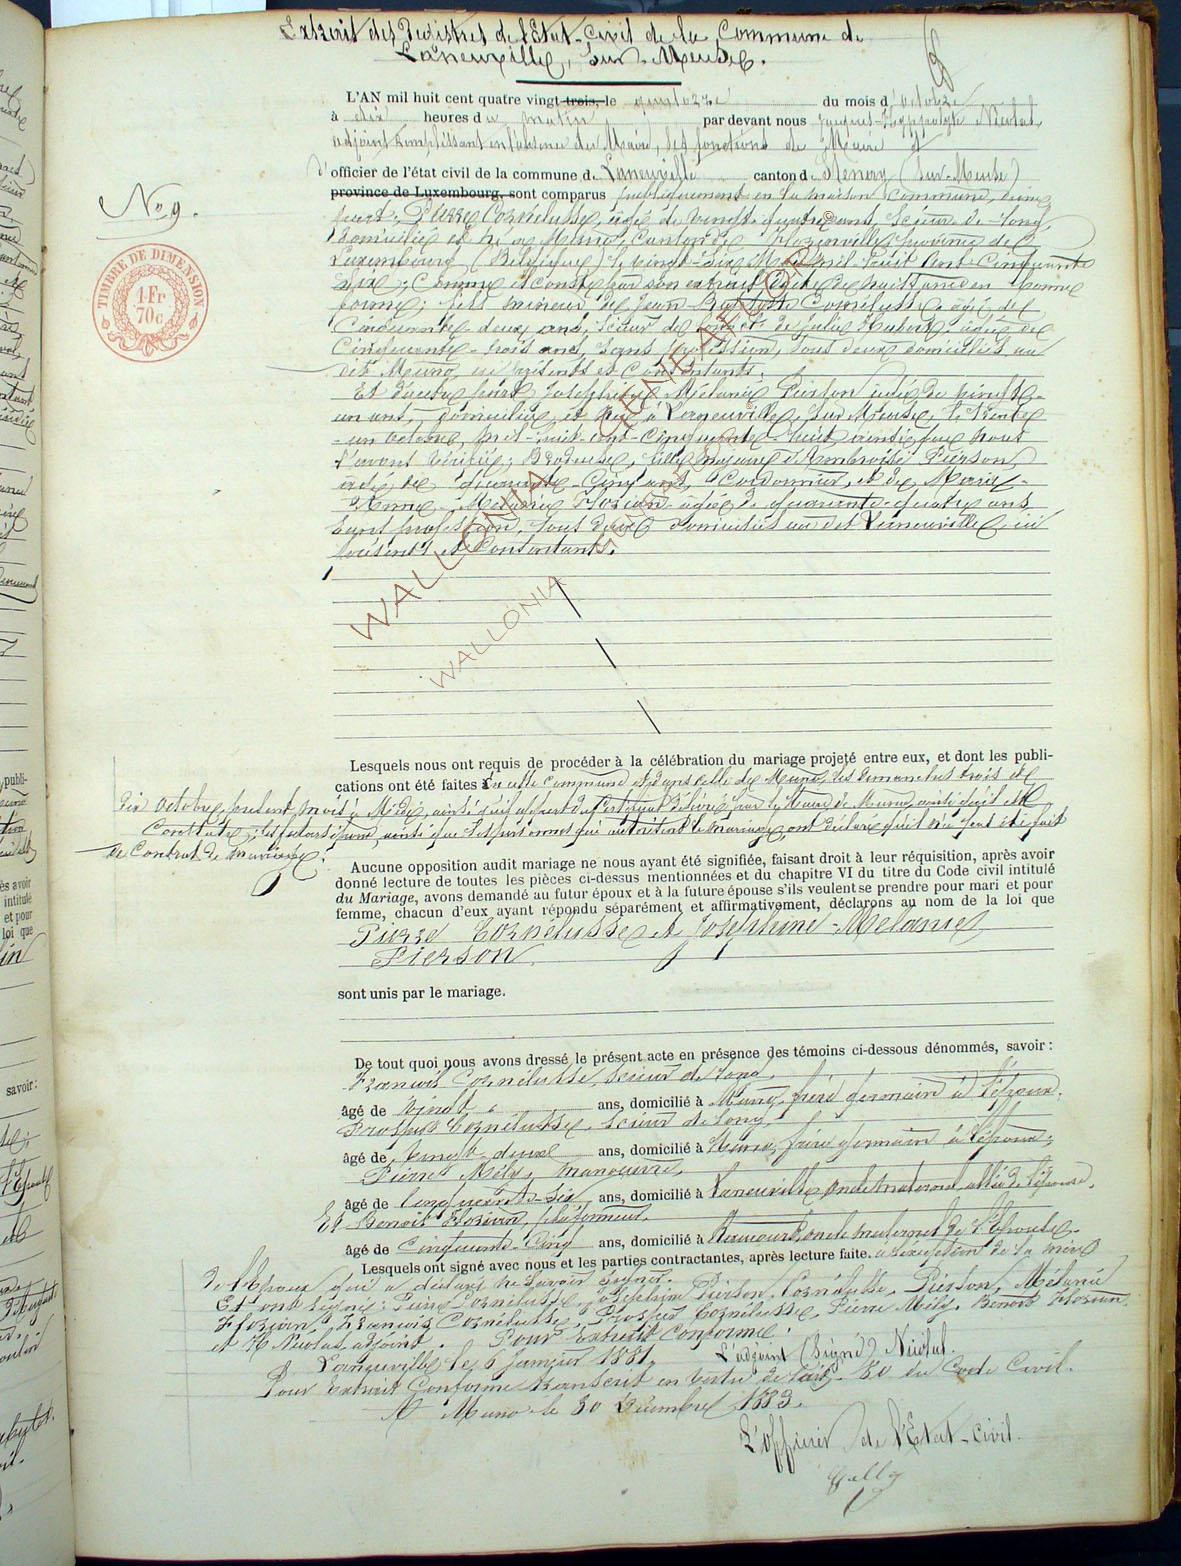 Extrait des Registres de l'Etat-Civil de la Commune de
Laneuville, sur Meuse.
L'AN mil huit cent quatre vingt trois, le quatorze du mois d'octobre
à dix heures du matin par devant nous Jacques-Hyppolyte Nicolas,
adjoint remplissant en l'absence du Maire, les fonctions de Maire et
d'officier de l'état civil de la commune de Laneuville canton de Stenay (sur Meuse)
province de Luxembourg, sont comparus publiquement en la maison commune, d'une
part: Pierre Cornélusse, âgé de vingt-quatre ans, scieur de long,
domicilié et né à Muno, Canton de Florenville, province de
Luxembourg (Belgique) le vingt-six Mai mil huit cent cinquante
six; comme il conste par son extrait d'acte de naissance en bonne
forme; fils mineur de Jean-Baptiste Cornélusse, âgé de
cinquante deux ans, scieur de long et de Julie Hubert âgée de
cinquante-trois ans, sans profession, tous deux domiciliés au
dit Muno, ici présents et consentants.
Et d'autre part Joséphine Mélanie Pierson âgée de vingt-
un ans, domiciliée et née à Laneuville, sur Meuse, le trente
-un octobre mil-huit-cent-cinquante-huit ainsi que nous
l'avons vérifié; Brodeuse, fille majeure d'Ambroise Pierson,
âgé de quarante-cinq ans, Cordonnier, et de Marie-
Anne-Mélanie Florian âgée de quarante-quatre ans
sans profession, tous deux domiciliés au dit Laneuville, ici
présents et consentants.
No 9.
TIMBRE DE DIMENSION
1 Fr
70c
WALLONIA GENE AFE OR
WALLONIA
Lesquels nous ont requis de procéder à la célébration du mariage projeté entre eux, et dont les publi-
cations ont été faites en cette commune et dans celle de Muno, les dimanches trois et
dix octobre présent mois à Midi, ainsi qu'il appert du certificat délivré par le Maire de Muno,
Contrat; les futurs époux, ainsi que les personnes qui autorisent le mariage, ont déclaré qu'il n'a point été fait
de Contrat de mariage.
Aucune opposition audit mariage ne nous ayant été signifiée, faisant droit à leur réquisition, après avoir
donné lecture de toutes les pièces ci-dessus mentionnées et du chapitre VI du titre du Code civil intitulé
du Mariage, avons demandé au futur époux et à la future épouse s'ils veulent se prendre pour mari et pour
femme, chacun d'eux ayant répondu séparément et affirmativement, déclarons au nom de la loi que
Pierre Cornélusse et Joséphine-Mélanie
Pierson
sont unis par le mariage.
De tout quoi nous avons dressé le présent acte en présence des témoins ci-dessous dénommés, savoir:
François Cornélusse, scieur de long,
âgé de vingt ans, domicilié à Muno, frère germain à l'époux.
Prosper Cornélusse, scieur de long,
âgé de vingt-deux ans, domicilié à Muno, frère germain à l'époux;
Pierre Mély, manoeuvre,
âgé de cinquante-six ans, domicilié à Laneuville, oncle maternel allié de l'épouse,
Et Benoit Florian,
âgé de cinquante-cinq ans, domicilié à oncle maternel de l'épouse.
Lesquels ont signé avec nous et les parties contractantes, après lecture faite. à l'exception de la mère
de l'Epoux qui a déclaré ne savoir signer.
Et ont signé: Pierre Cornélusse, Joséphine Pierson, Cornélusse, Pierson, Mélanie
Florian, François Cornélusse, Prosper Cornélusse, Pierre Mély, Benoit Florian
et H Nicolas adjoint. Pour extrait conforme.
Laneuville, le 6 Janvier 1881. L'adjoint (Signé) Nicolas.
Pour Extrait Conforme transcrit en vertu de l'art. 80 du Code Civil.
A Muno le 30 Décembre 1883.
L'officier de l'Etat-civil.